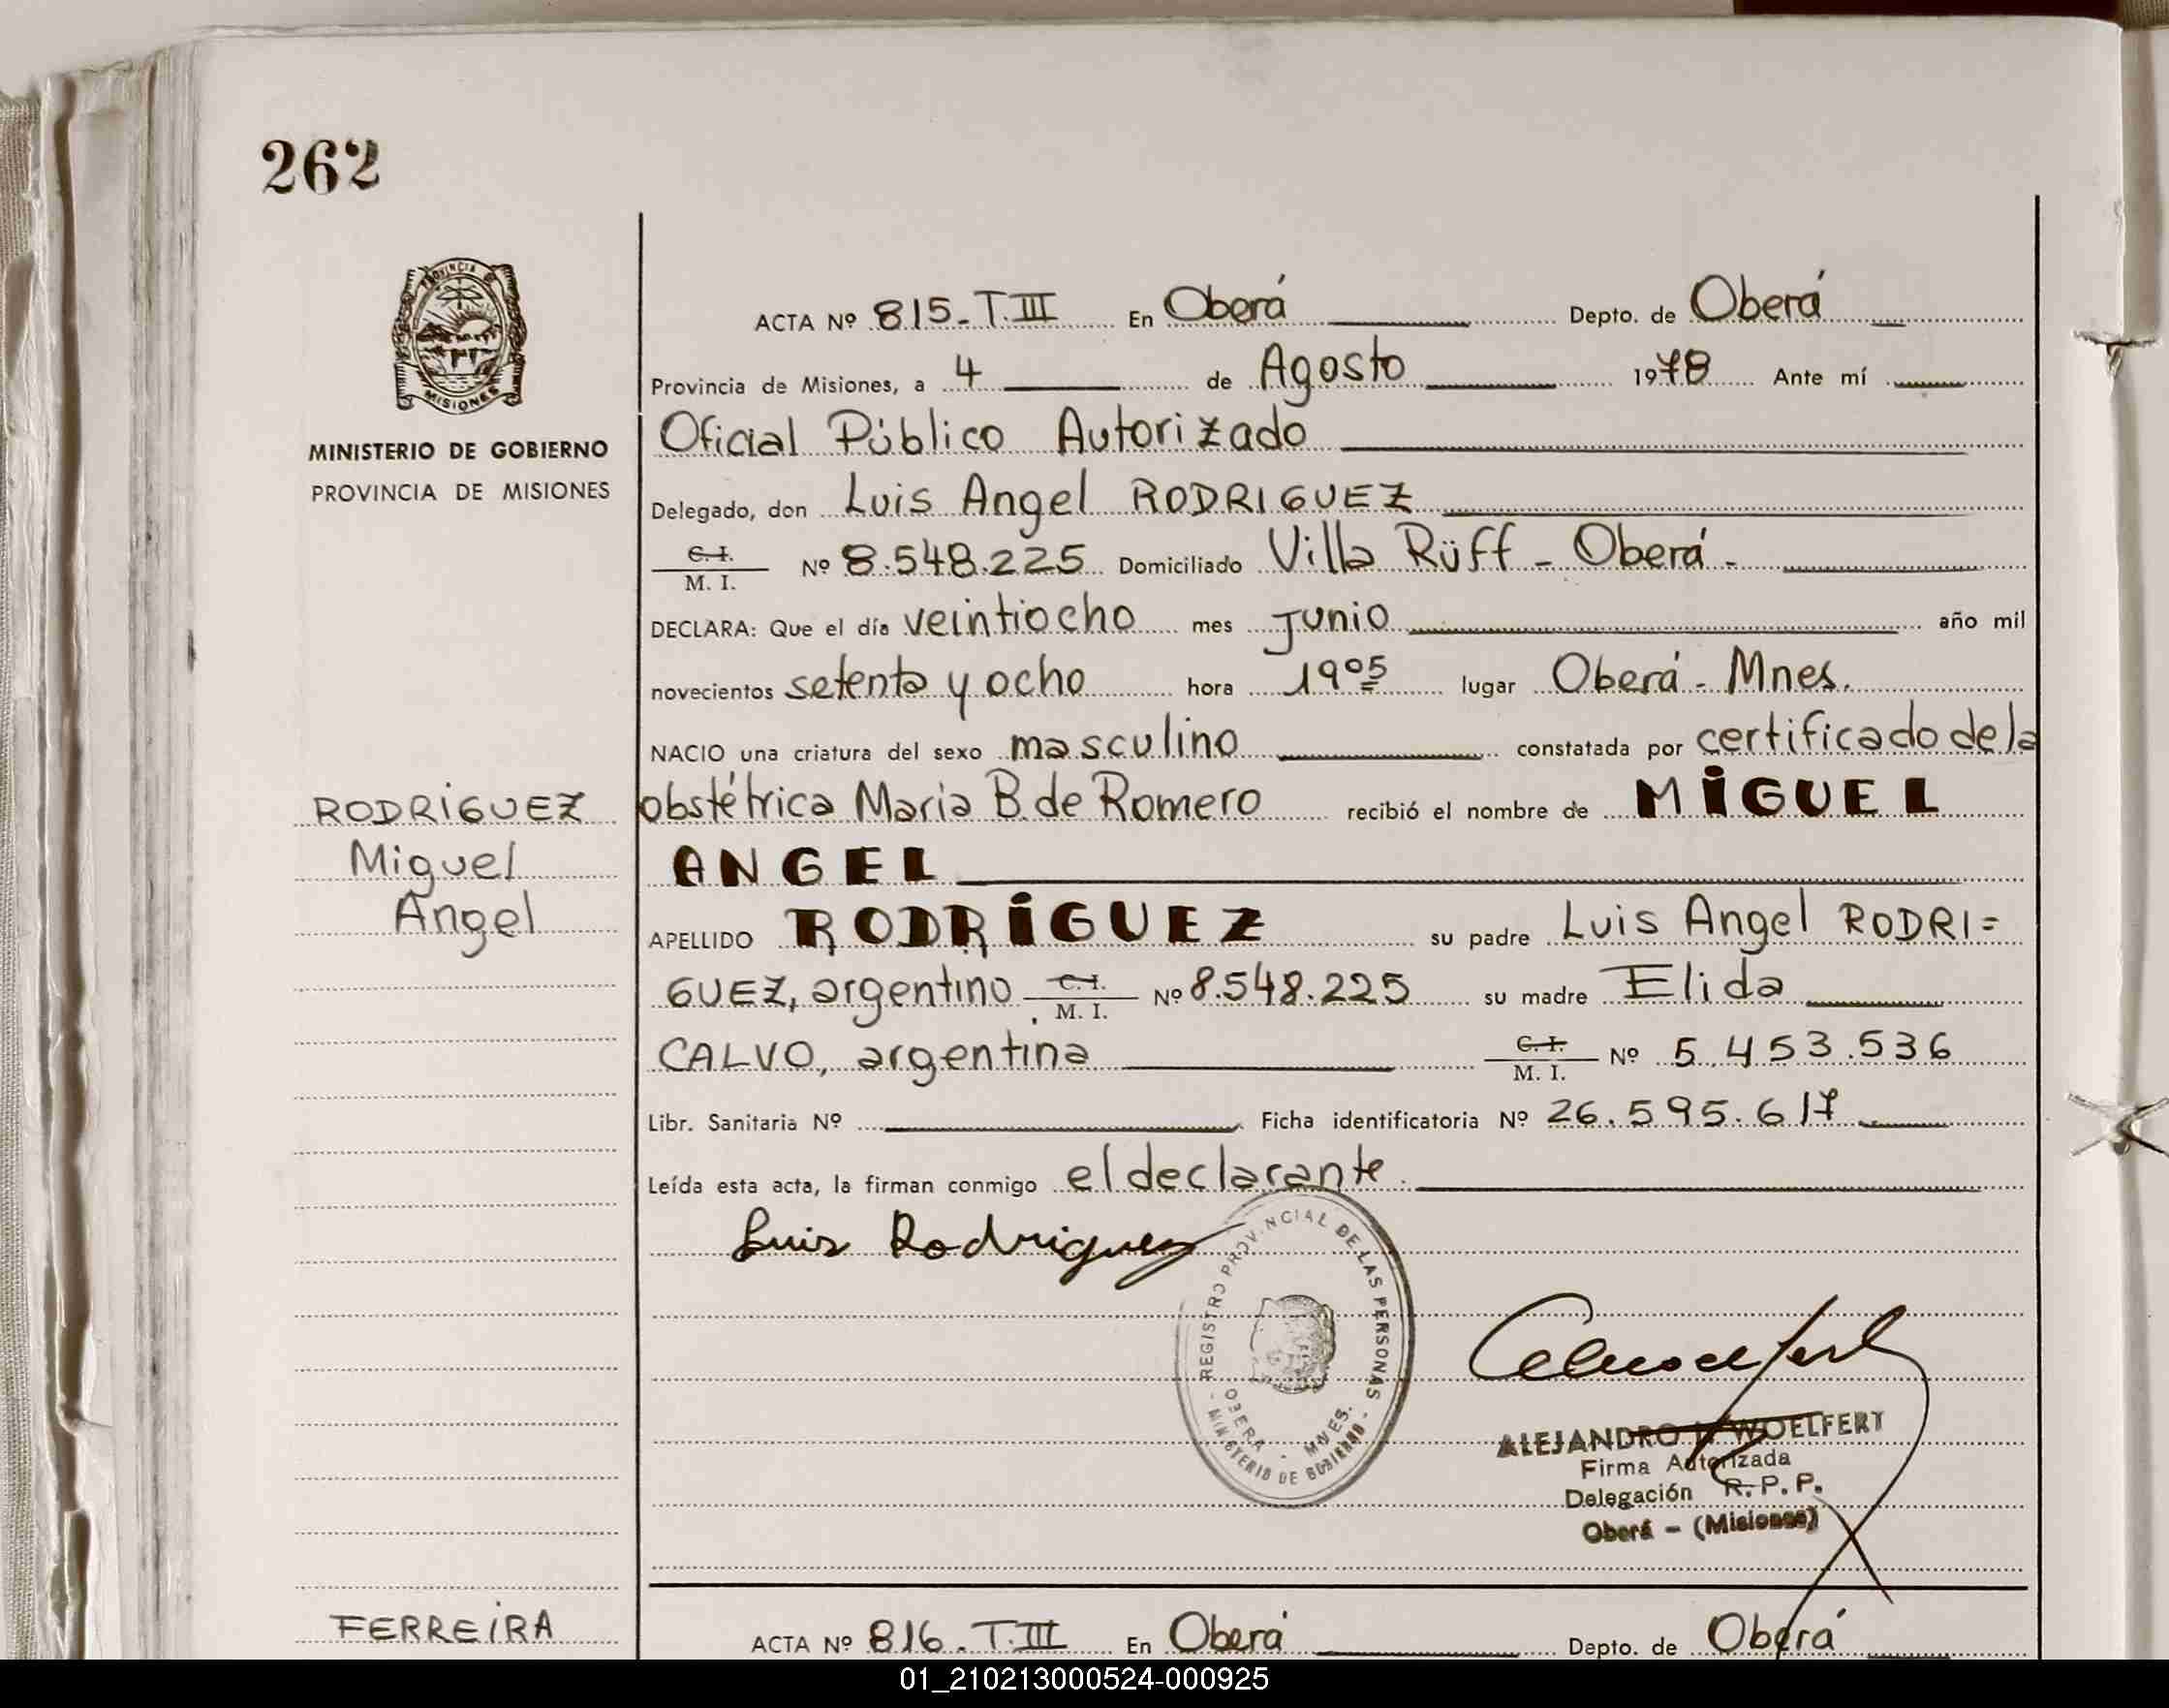 262
PROVINCIA DE
MISIONES
MINISTERIO DE GOBIERNO
PROVINCIA DE MISIONES
ACTA Nº 815-T.III En Oberá Depto. de Oberá
Provincia de Misiones, a 4 de Agosto 1978 Ante mí
Oficial Público Autorizado
Delegado, don Luis Angel RODRIGUEZ
C.I. M. I. Nº 8.548.225 Domiciliado Villa Rüff - Oberá -
DECLARA: Que el día veintiocho mes Junio año mil
novecientos setenta y ocho hora 19 05 lugar Oberá - Mnes.
NACIO una criatura del sexo masculino constatada por certificado de la
obstétrica Maria B. de Romero recibió el nombre de MIGUEL
ANGEL
APELLIDO RODRIGUEZ su padre Luis Angel RODRI=
GUEZ, argentino C.I. M. I. Nº 8.548.225 su madre Elida
CALVO, argentina C.I. M. I. Nº 5.453.536
Libr. Sanitaria Nº Ficha identificatoria Nº 26.595.617
Leída esta acta, la firman conmigo el declarante.
RODRIGUEZ
Miguel
Angel
Luis Rodriguez
REGISTRO PROVINCIAL DE LAS PERSONAS
OBERA - MNES.
MINISTERIO DE GOBIERNO
ALEJANDRO WOELFERT
Firma Autorizada
Delegación R.P.P.
Oberá - (Misiones)
FERREIRA
ACTA Nº 816-T.III En Oberá Depto. de Oberá
01_210213000524-000925